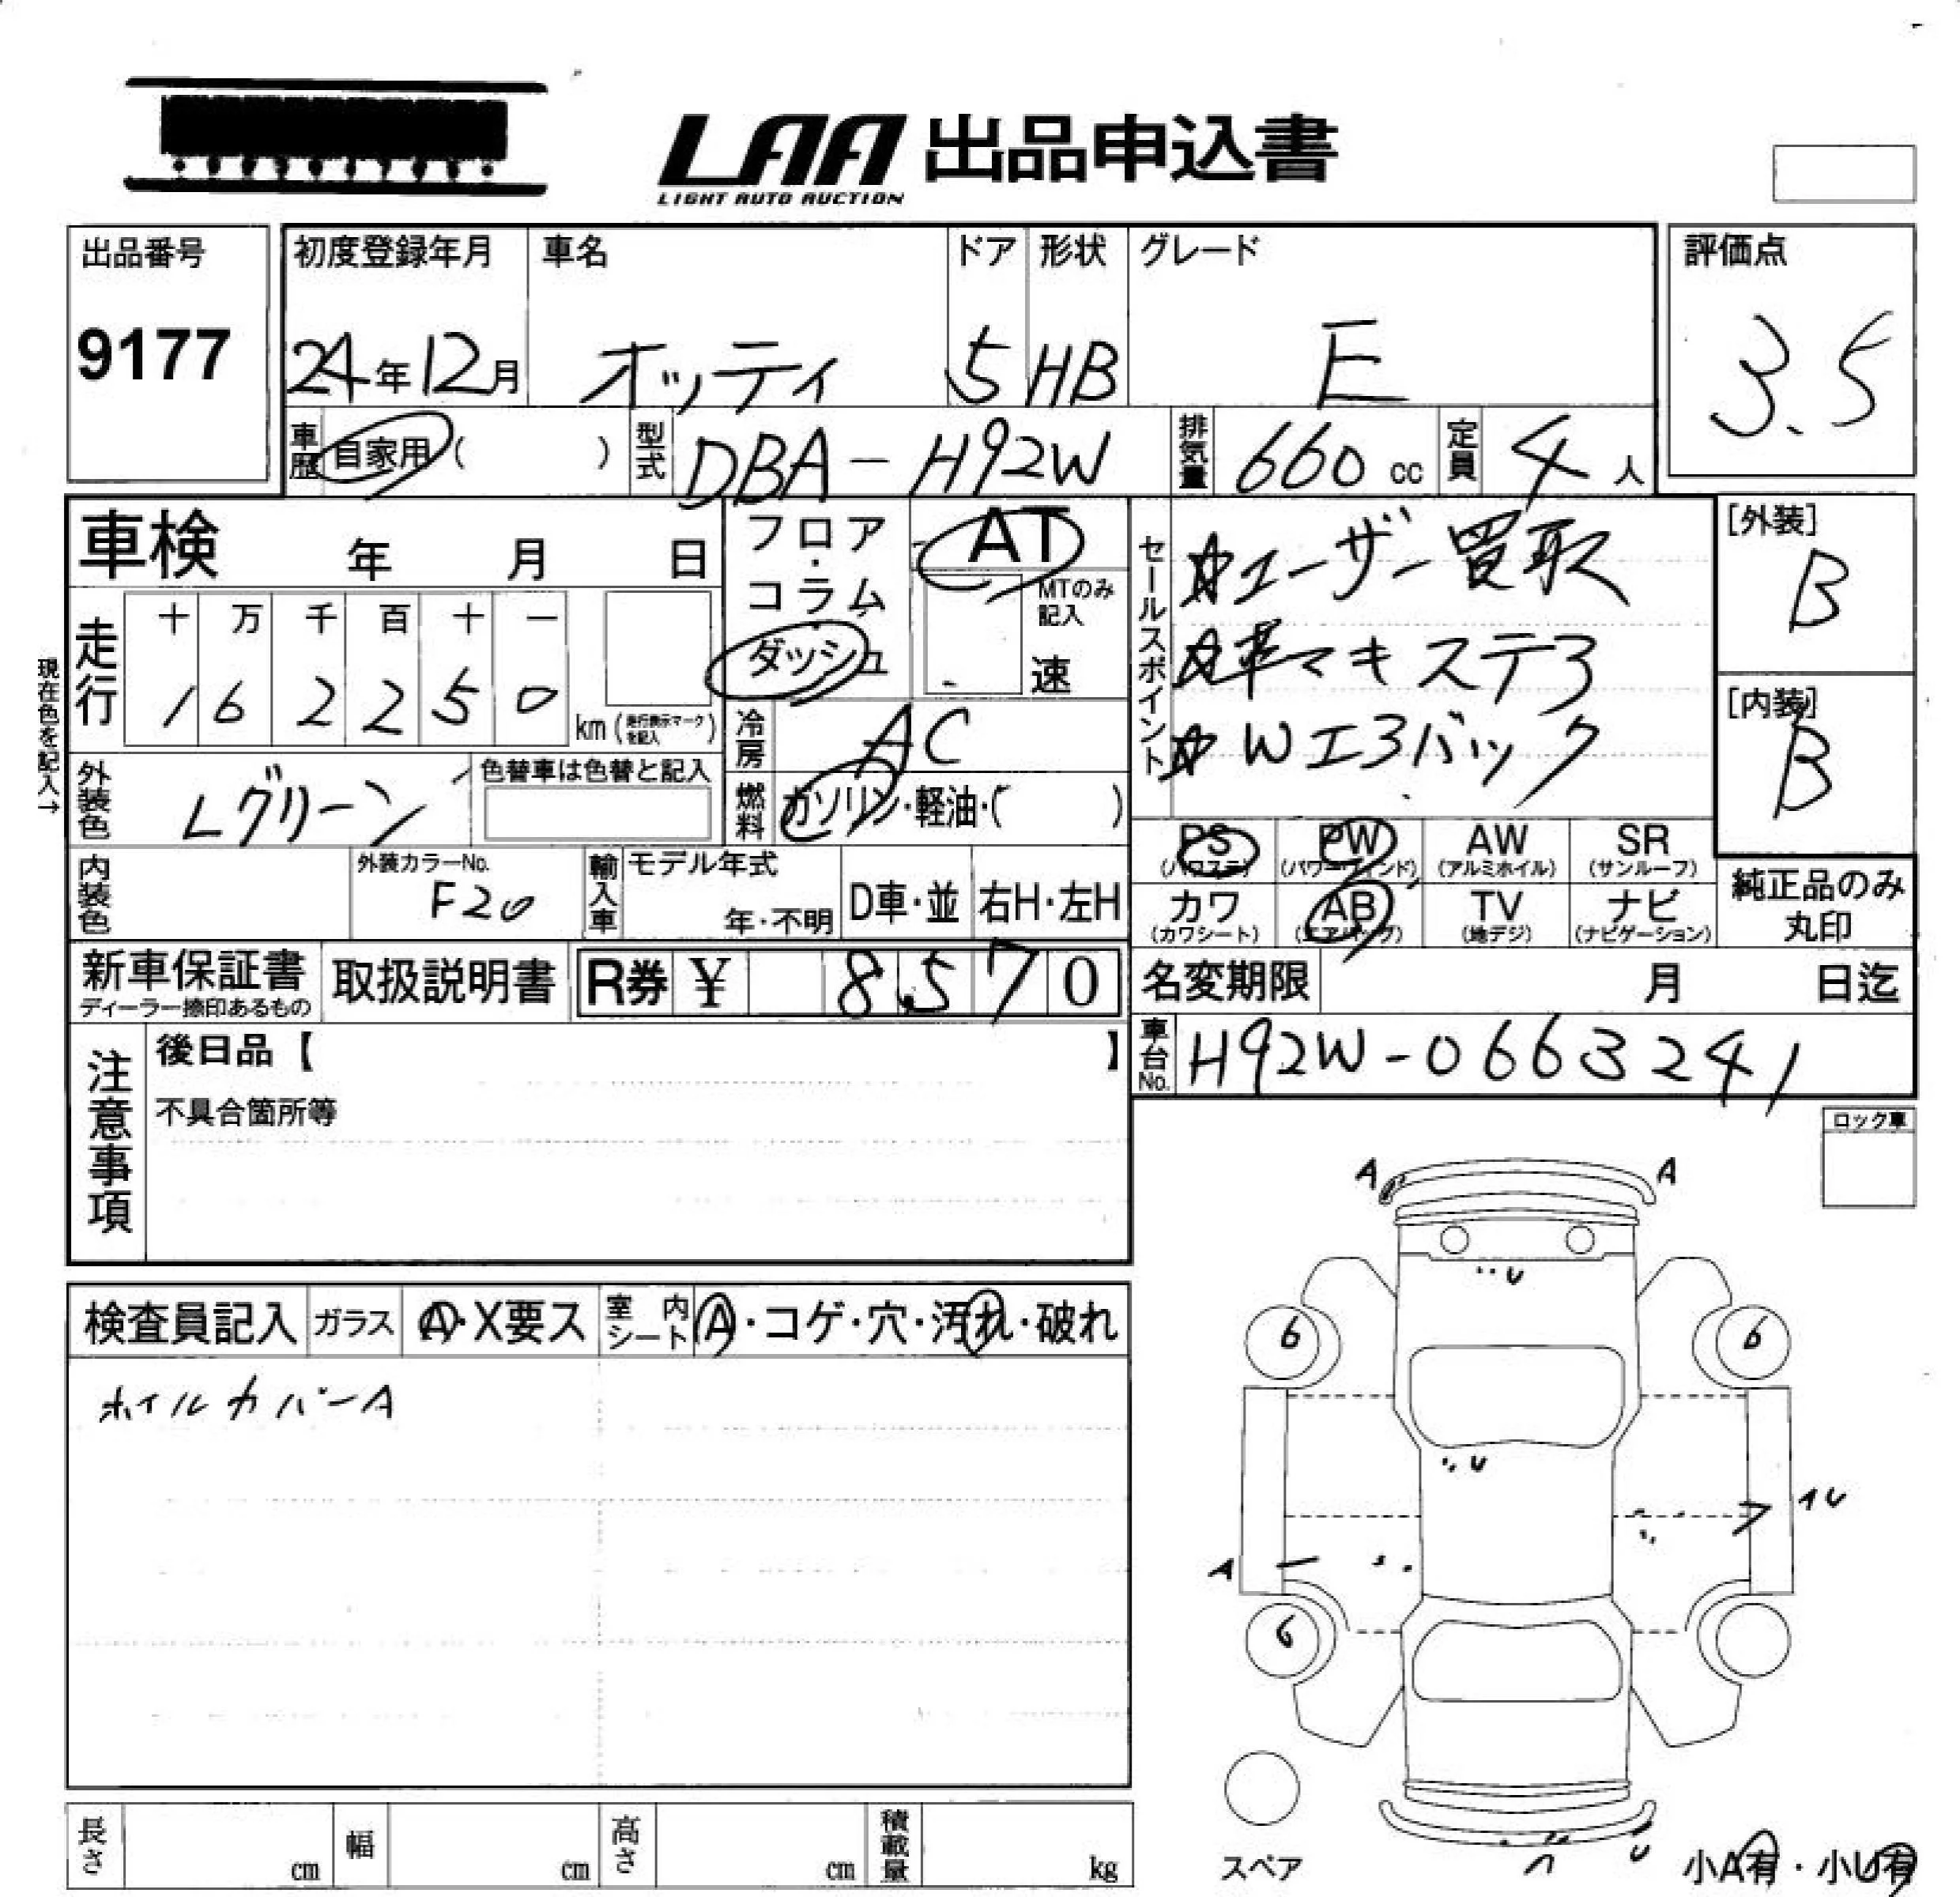 LAA 出品申込書
LIGHT AUTO AUCTION
出品番号
9177
初度登録年月
24年12月
車名
オッティ
ドア
5
形状
HB
グレード
E
評価点
3.5
車歴
自家用( )
型式
DBA-H92W
排気量
660 cc
定員
4 人
車検 年 月 日
フロア・コラム
ダッシュ
AT
MTのみ記入
速
セールスポイント
☆ユーザー買取
☆革マキステヲ
☆Wエヲバック
[外装]
B
[内装]
B
現在色を記入→
走行
十 万 千 百 十 一
1 6 2 2 5 0
km(走行表示マークを記入)
冷房
AC
外装色
Lグリーン
色替車は色替と記入
燃料
ガソリン・軽油・( )
PS
(パワステ)
PW
(パワーウィンド)
AW
(アルミホイル)
SR
(サンルーフ)
カワ
(カワシート)
AB
(エアバッグ)
TV
(地デジ)
ナビ
(ナビゲーション)
純正品のみ
丸印
内装色
外装カラーNo.
F20
輸入車
モデル年式
年・不明
D車・並
右H・左H
新車保証書
ディーラー捺印あるもの
取扱説明書
R券 ¥ 8,570
名変期限 月 日迄
車台No.
H92W-0663241
注意事項
後日品【 】
不具合箇所等
ロック車
検査員記入
ガラス
A・X要ス
室内シート
A・コゲ・穴・汚れ・破れ
ホイルカバーA
A A
U
6 6
U
A
6
U
スペア
小A有・小U有
長さ cm
幅 cm
高さ cm
積載量 kg